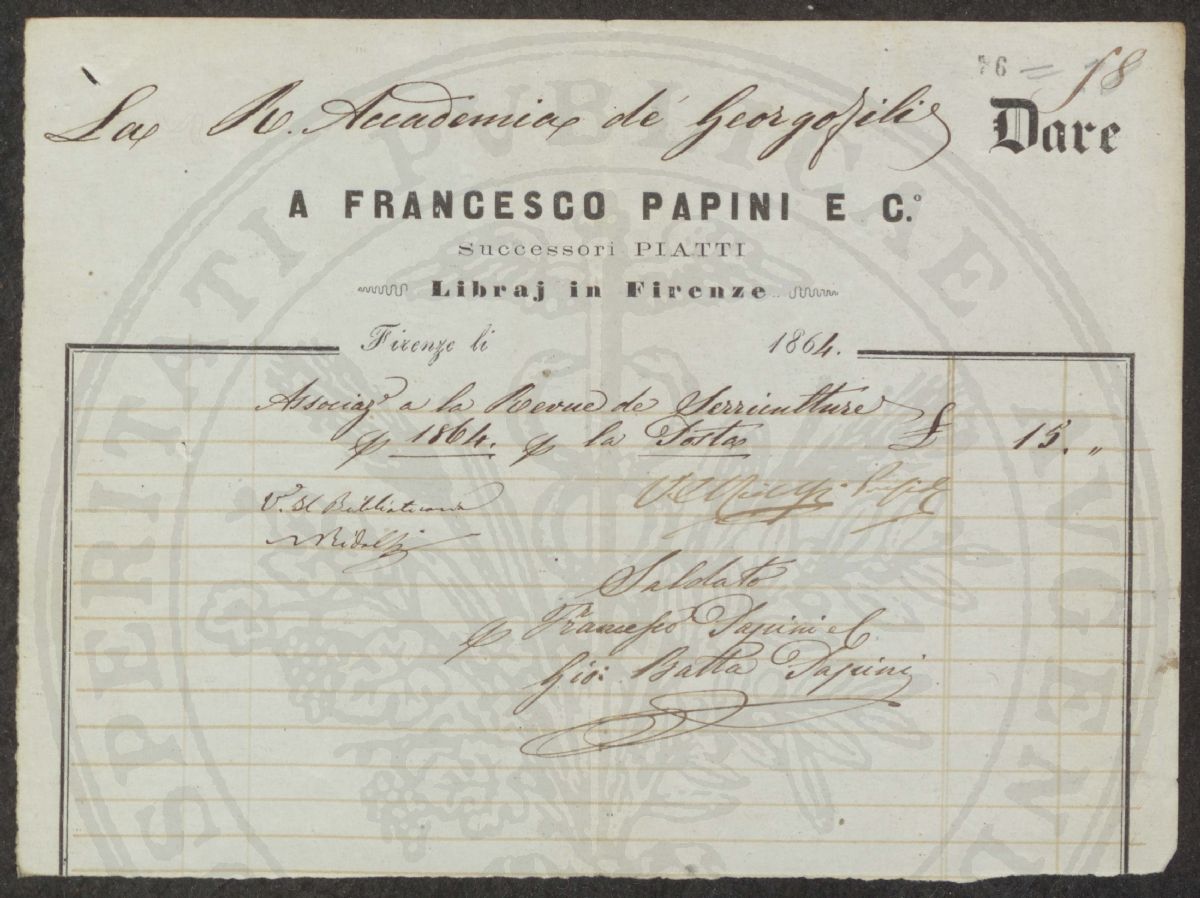 76 = 18
La R. Accademia de' Georgofili
Dare
A FRANCESCO PAPINI E C.º
Successori PIATTI
Libraj in Firenze
Firenze li 1864.
Associazº a la Revue de Serriculture
p 1864. p la Posta £ 15. "
V.º Il Bibliotecario
Ridolfi
Saldato
p Francesco Papini e C.
Gio: Batta Papini
PROSPERITATI PVBLICAE AVGENDAE